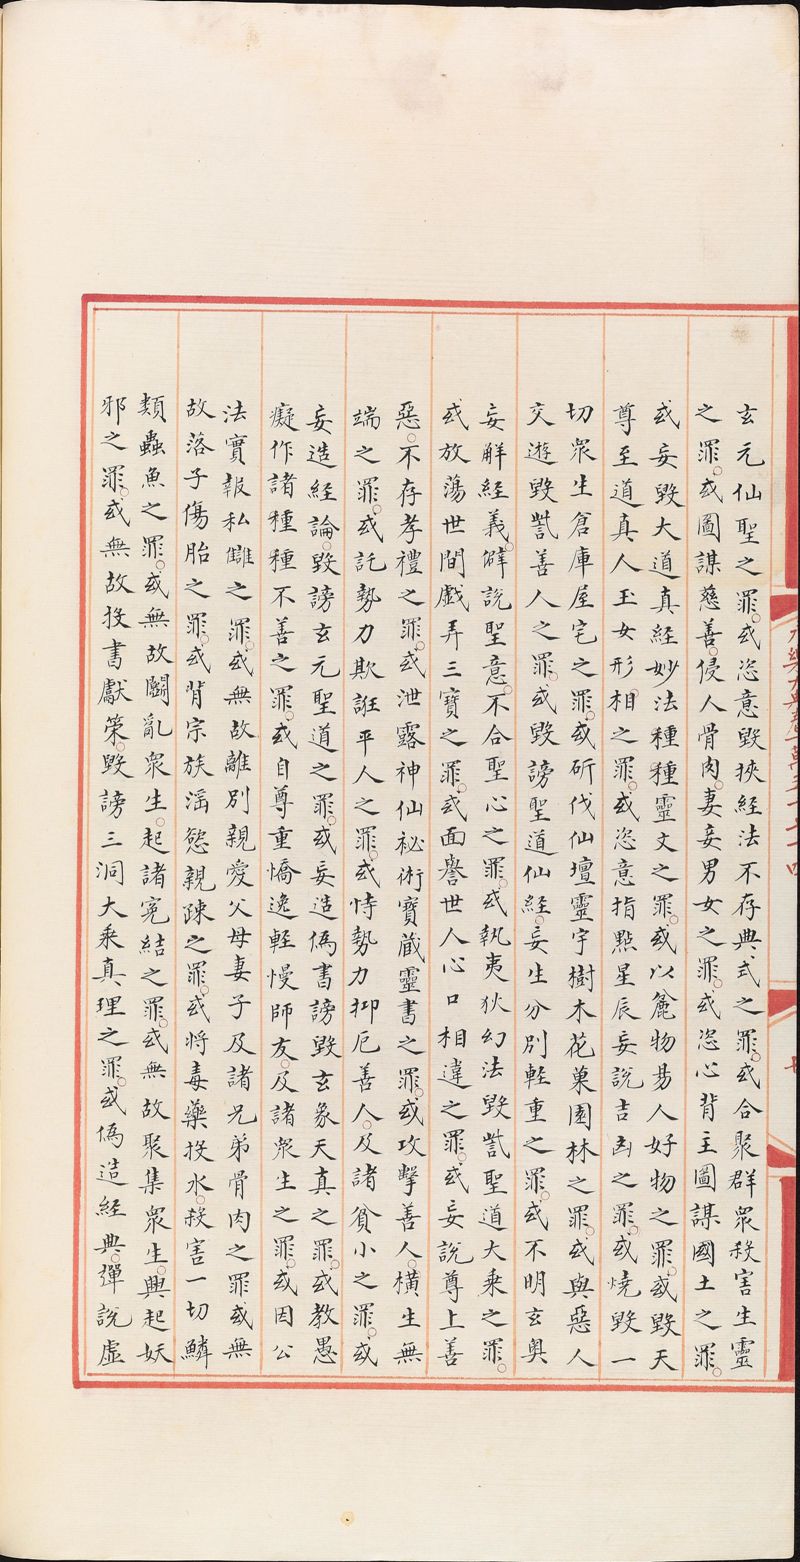 玄元仙聖之罪。或恣意毀挾經法不存典式之罪。或合聚群衆殺害生靈
之罪。或圖謀慈善。侵人骨肉。妻妾男女之罪。或恣心背主圖謀國土之罪。
或妄毀大道真經妙法種種靈文之罪。或以麄物易人好物之罪。或毀天
尊至道真人玉女形相之罪。或恣意指點星辰妄說吉凶之罪。或燒毀一
切衆生倉庫屋宅之罪。或斫伐仙壇靈宇樹木花菓園林之罪。或與惡人
交遊毀訾善人之罪。或毀謗聖道仙經。妄生分別輕重之罪。或不明玄奥
妄解經義。僻說聖意。不合聖心之罪。或執夷狄幻法毀訾聖道大乘之罪。
或放蕩世間戲弄三寶之罪。或面譽世人心口相違之罪。或妄說尊上善
惡。不存孝禮之罪。或泄露神仙秘術寶藏靈書之罪。或攻擊善人。橫生無
端之罪。或託勢力欺誑平人之罪。或恃勢力抑厄善人。及諸貧小之罪。或
妄造經論。毀謗玄元聖道之罪。或妄造僞書謗毀玄象天真之罪。或教愚
癡作諸種種不善之罪。或自尊重憍逸輕慢師友。及諸衆生之罪。或因公
法實報私讎之罪。或無故離別親愛父母妻子及諸兄弟骨肉之罪或無
故落子傷胎之罪。或背宗族滛慾親踈之罪。或將毒藥投水。殺害一切鱗
類蟲魚之罪。或無故鬬亂衆生。起諸寃結之罪。或無故聚集衆生。興起妖
邪之罪。或無故投書獻策。毀謗三洞大乘真理之罪。或僞造經典。彈說虛